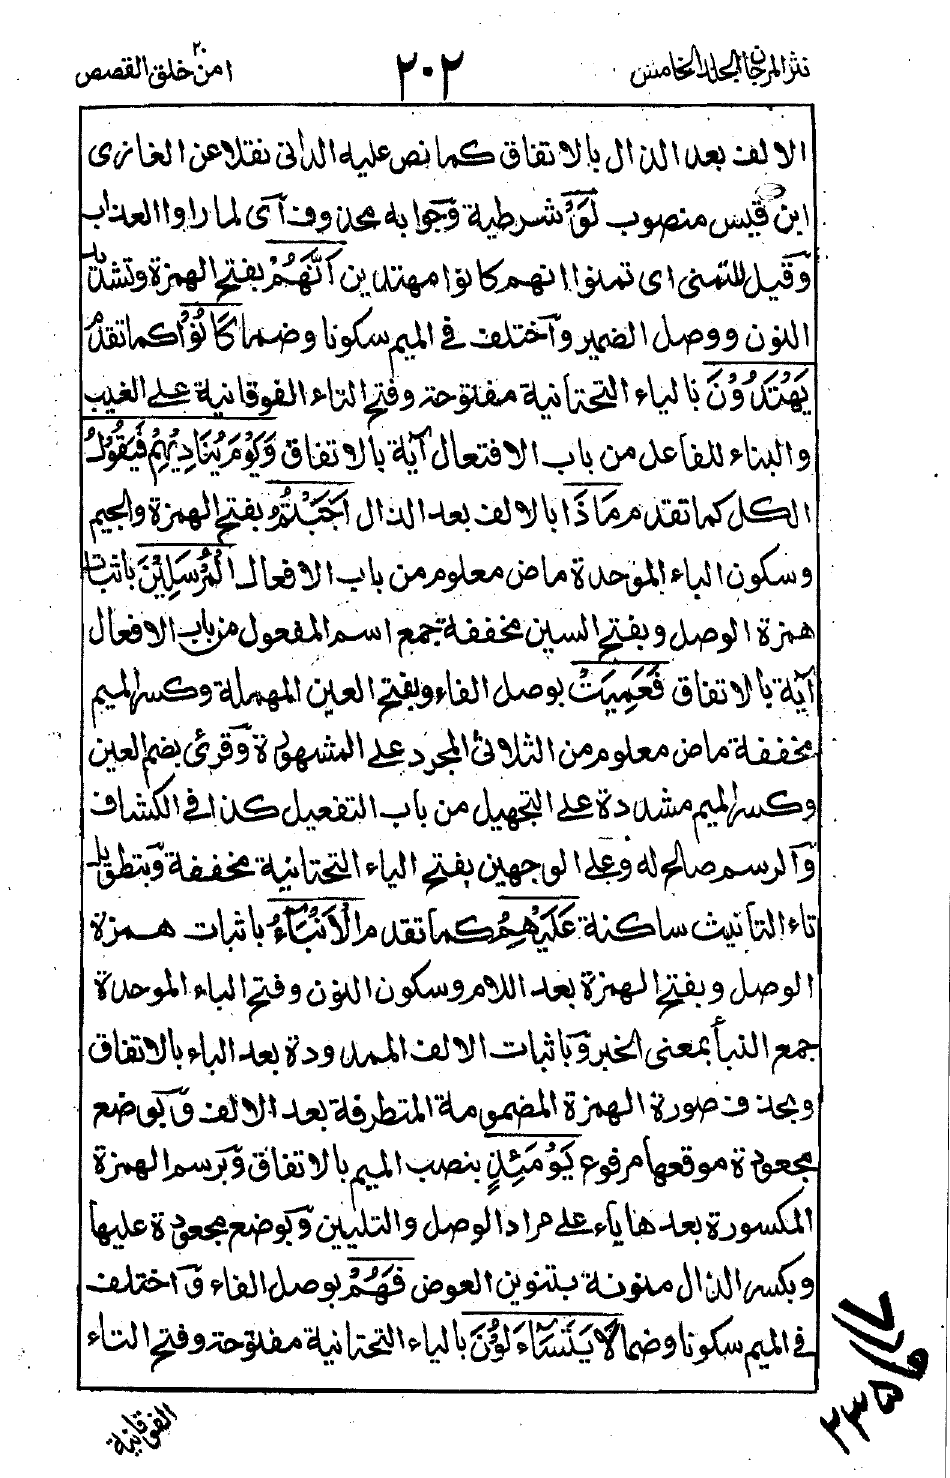 نثر المرجان المجلد الخامس
٢٠٢
امن خلق ٢٠ القصص
الالف بعد الذال بالاتفاق كما نص عليه الدانى نقلا عن الغازى
ابن قيس منصوب لَوْ شرطية وجوابه محذوف آى لما راوا العذاب
وقيل للتمنى اى تمنوا انهم كانوا مهتدين اَنَّهُمْ بفتح الهمزة وتشديد
النون ووصل الضمير وآختلف فى الميم سكونا وضما كَانُوْا كما تقدم
يَهْتَدُوْنَ بالياء التحتانية مفتوحة وفتح التاء الفوقانية على الغيب
والبناء للفاعل من باب الافتعال آية بالاتفاق وَيَوْمَ يُنَادِيْهِمْ فَيَقُوْلُ
الكل كما تقدم مَاذَا بالالف بعد الذال اَجَبْتُمُ بفتح الهمزة والجيم
وسكون الباء الموحدة ماض معلوم من باب الافعال الْمُرْسَلِيْنَ باثبات
همزة الوصل وبفتح السين مخففة جمع اسم المفعول من باب الافعال
آية بالاتفاق فَعَمِيَتْ بوصل الفاء وبفتح العين المهملة وكسر الميم
مخففة ماض معلوم من الثلاثى المجرد على المشهورة وقرئ بضم العين
وكسر الميم مشددة على التجهيل من باب التفعيل كذا فى الكشاف
وآلرسم صالح له وعلى الوجهين بفتح الياء التحتانية مخففة وبتطويل
تاء التأنيث ساكنة عَلَيْهِمُ كما تقدم الْاَنْۢبَآءُ باثبات همزة
الوصل وبفتح الهمزة بعد اللام وسكون النون وفتح الباء الموحدة
جمع النبأ بمعنى الخبر وباثبات الالف الممدودة بعد الباء بالاتفاق
وبحذف صورة الهمزة المضمومة المتطرفة بعد الالف وبوضع
مجعودة موقعها مرفوع يَوْمَئِذٍ بنصب الميم بالاتفاق وبرسم الهمزة
المكسورة بعدها ياء على مراد الوصل والتليين وبوضع مجعودة عليها
وبكسر الذال منونة بتنوين العوض فَهُمْ بوصل الفاء وآختلف
فى الميم سكونا وضما لَا يَتَسَآءَلُوْنَ بالياء التحتانية مفتوحة وفتح التاء
الفوقانية